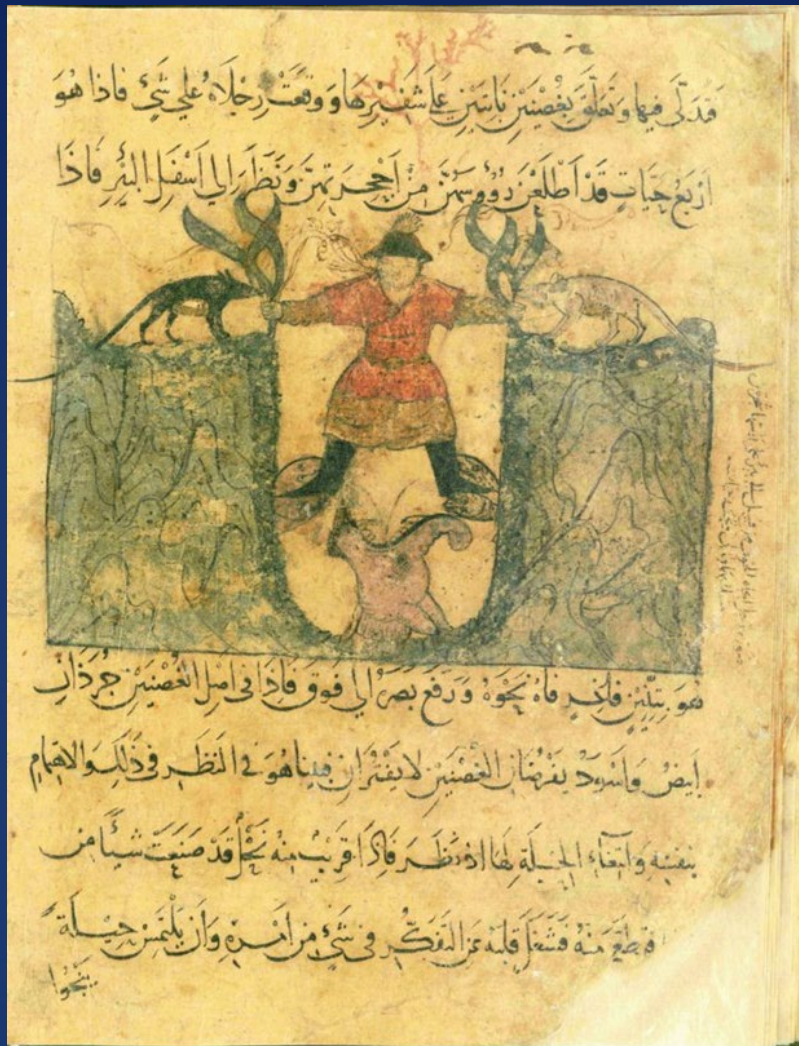 فتدلى فيها وتعلق بغصنين نابتين على شفيرها ووقعت رجلاه علي شئ فاذا هو
اربع حيات قد اطلعن رؤوسهن من اجحرتهن ونظر الي اسفل البئر فاذا
هو بتنين فاتح فاه نحوه ورفع بصره الي فوق فاذا في اصل الغصنين جرذان
ابيض واسود يقرضان الغصنين لا يفتران فبينا هو في النظر في ذلك والاهتمام
بنفسه وابتغاء الحيلة لها اذ نظر فاذا قريب منه نحل قد صنعت شيئا من
منه فشغل قلبه عن التفكر في شئ من امره وان يلتمس حيلة
ينجوا